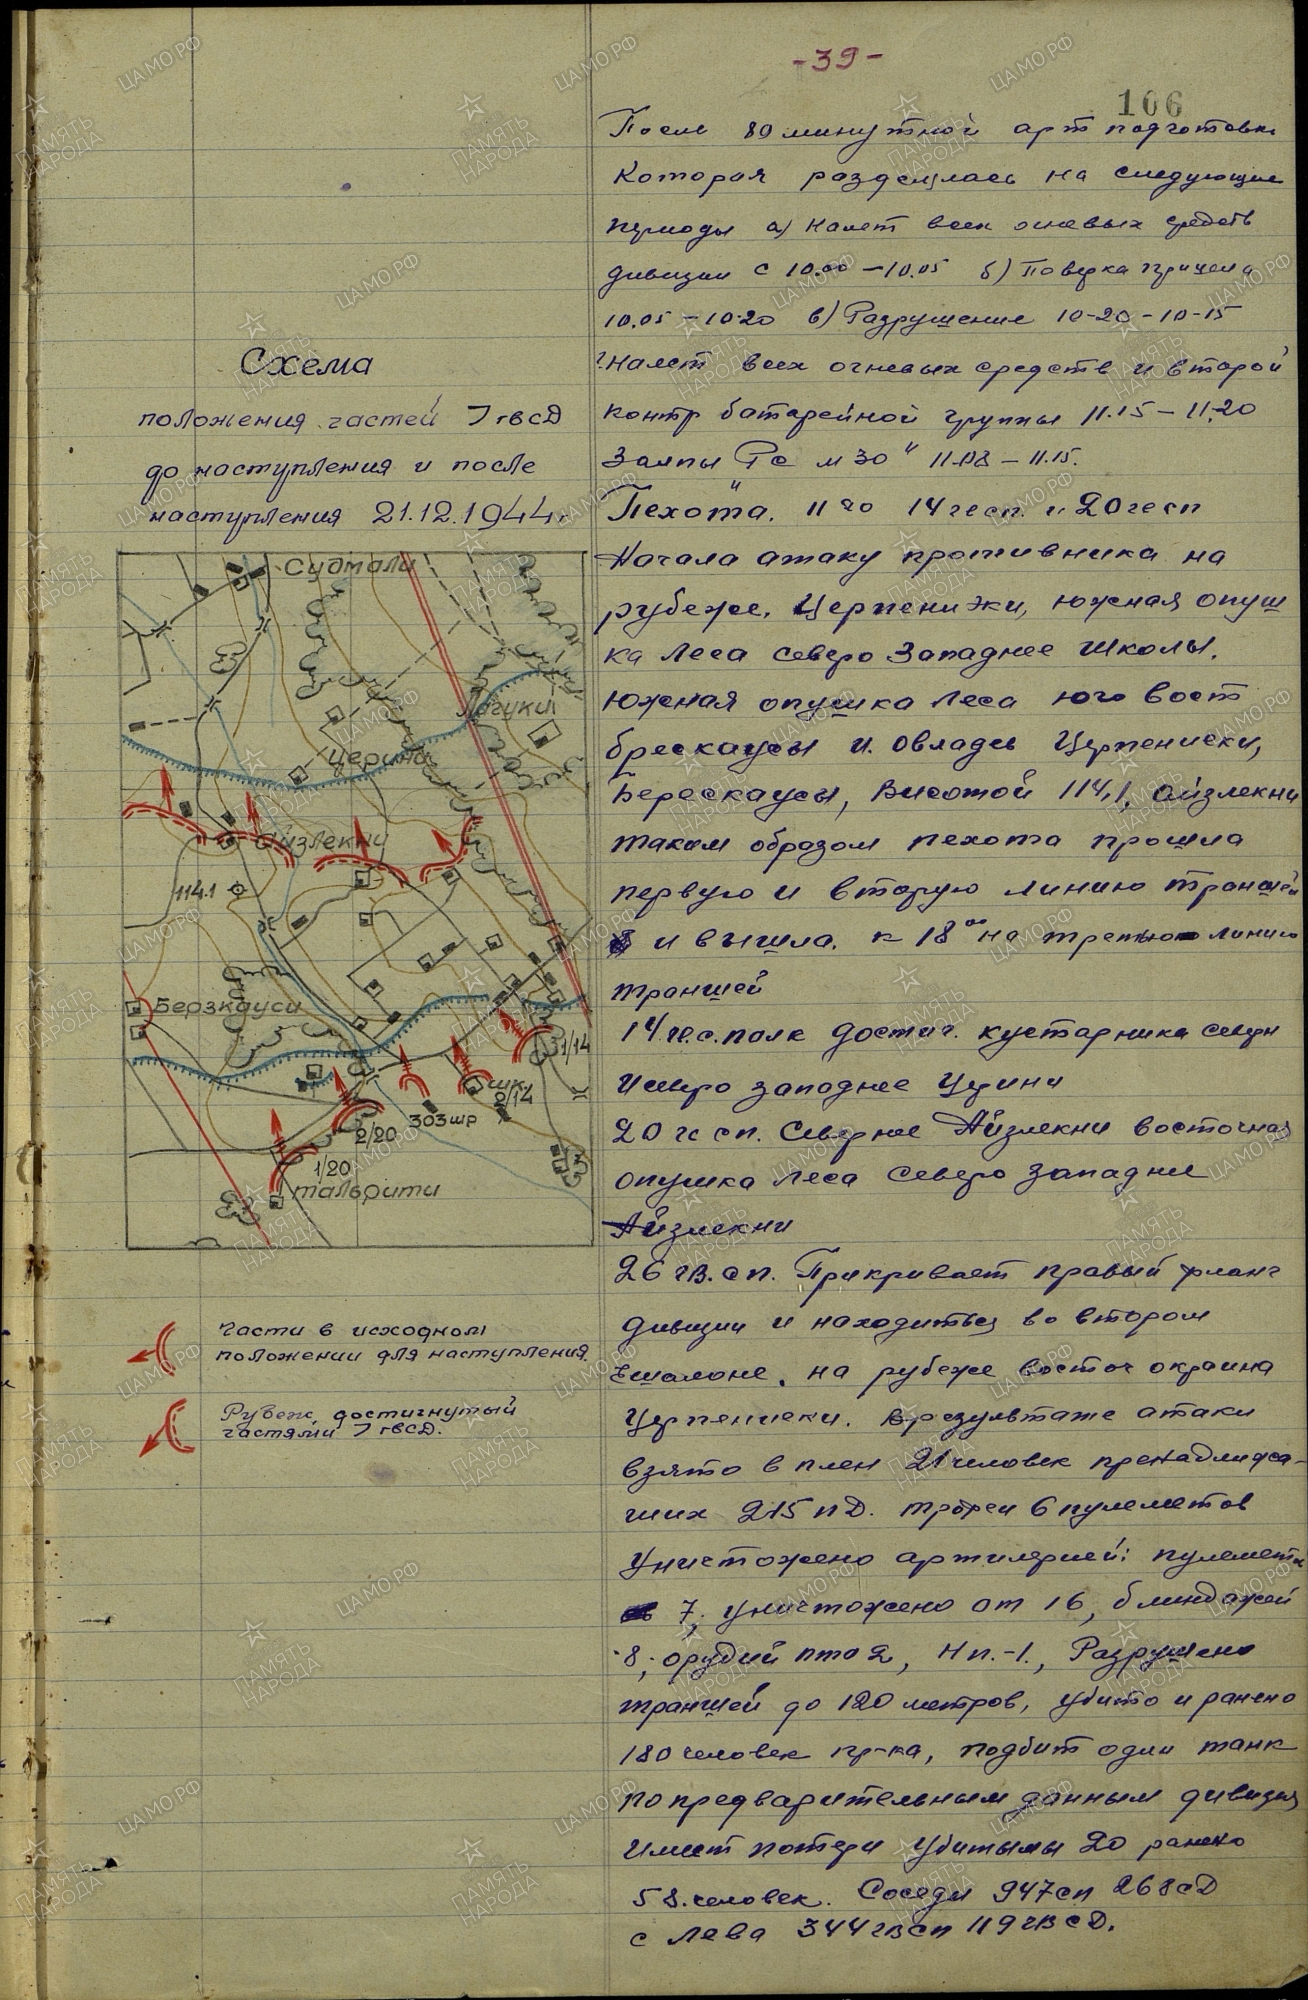 -39-
106
Схема
положения частей 7 гвсд
до наступления и после
наступления 21.12.1944г.
Судмали
Логуки
Церини
Айзлекни
114.1
Берзкауси
1/14
шк.
2/14
303 шр
2/20
1/20
тальрити
части в исходном
положении для наступления.
Рубеж, достигнутый
частями 7 гвсд.
После 80 минутной арт подготовки
Которая разделялась на следующие
периоды а) Налет всех огневых средств
дивизии с 10.00 – 10.05 б) Поверка прицела
10.05 – 10-20 в) Разрушение 10-20 – 10-15
Налет всех огневых средств и второй
контр батарейной группы 11.15 – 11.20
Залпы Рс м 30 – 11.15.
Пехота 14 гсп и 20 гсп
Начала атаку противника на
рубеже. Церпениски, южная опуш
ка леса северо Западнее школы.
южная опушка леса юго вост
брескаусы и овладев Церпениски,
Берескаусы, Высотой 114,1, Айзлекни
таким образом пехота прошла
первую и вторую линию траншей
и вышла. к 18 00 на третью линию
траншей
14 гв.с.полк достиг. кустарника север
и северо западнее Церини
20 гв сп. Севернее Айзлекни восточная
опушка леса Северо Западнее
Айзлекни
26 гв. сп. Прикривает правый фланг
дивизии и находиться во втором
ешалоне, на рубеже восточ окраина
Церпениски. в результате атаки
взято в плен 21 человек пренадлежа-
щих 215 пд. трофеи 6 пулеметов
Уничтожено артилерией: пулемет
7, уничтожено от 16, блиндажей
-8, орудий пто 2, Нп.-1, Разрушено
траншей до 120 метров, убито и ранено
180 человек пр-ка, подбит один танк
по предварительным данным дивизия
имеет потери убитыми 20 ранено
58. человек. Соседи 947 сп 268 сд
с лева 344 гв сп 119 гв сд.